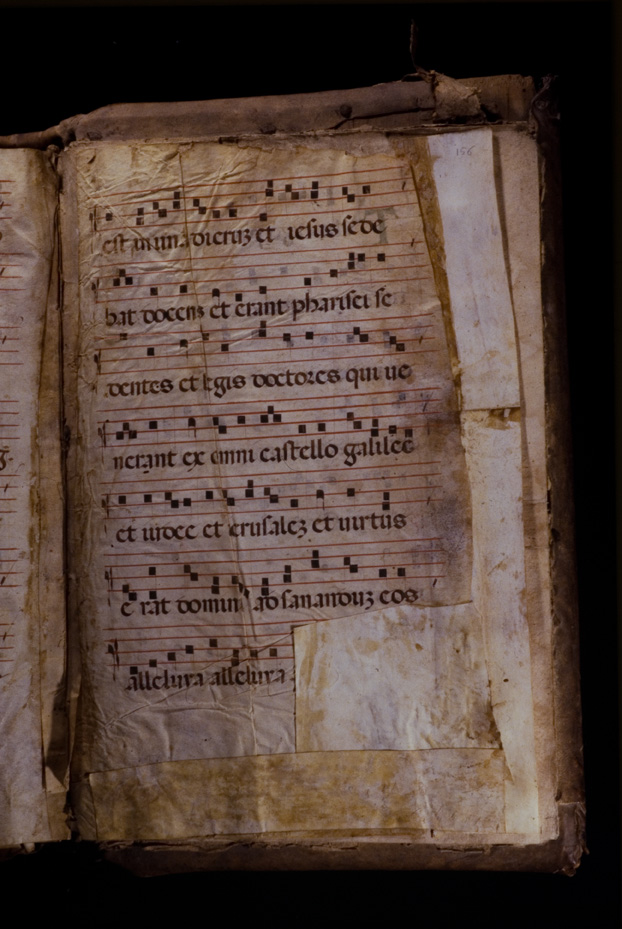 156
est in una dieruʒ et iesus sede
bat docens et erant pharisei se
dentes et legis doctores qui ue
nerant ex omni castello galilee
et iudee et ierusaleʒ et uirtus
e rat domini ad sananduʒ eos
alleluya alleluya